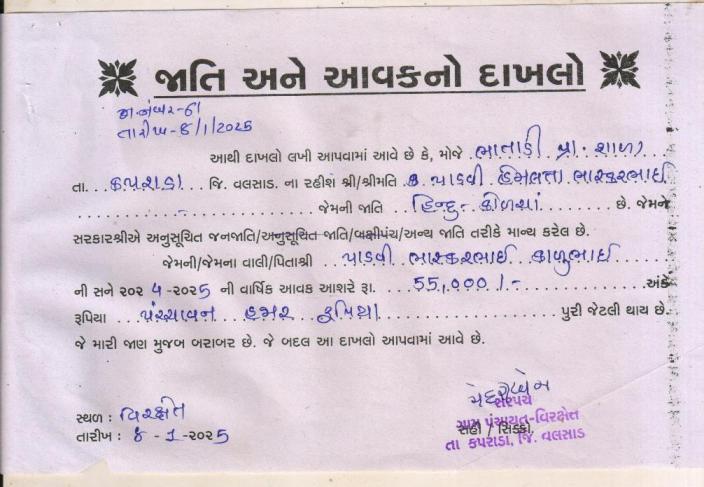 જાતિ અને આવકનો દાખલો
જા.નંબર-61
તારીખ-8/1/2025
આથી દાખલો લખી આપવામાં આવે છે કે, મોજે ભાતાડી પ્રા. શાળા
તા. કપરાડા જિ. વલસાડ. ના રહીશ શ્રી/શ્રીમતિ કુ. પાડવી હેમલતા ભાસ્કરભાઈ
- જેમની જાતિ હિન્દુ- કોળચાં છે. જેમને
સરકારશ્રીએ અનુસૂચિત જનજાતિ/અનુસૂચિત જાતિ/બક્ષીપંચ/અન્ય જાતિ તરીકે માન્ય કરેલ છે.
જેમની/જેમના વાલી/પિતાશ્રી પાડવી ભાસ્કરભાઈ કાળુભાઈ
ની સને ૨૦૨4-૨૦૨5 ની વાર્ષિક આવક આશરે રૂા. 55,000/- અંકે
રૂપિયા પંચાવન હજાર રૂપિયા પુરી જેટલી થાય છે.
જે મારી જાણ મુજબ બરાબર છે. જે બદલ આ દાખલો આપવામાં આવે છે.
સ્થળ : વિરક્ષેત
તારીખ : 8-1-૨૦૨5
સરપંચ
ગ્રામ પંચાયત-વિરક્ષેત
સહી / સિક્કો.
તા કપરાડા, જિ. વલસાડ